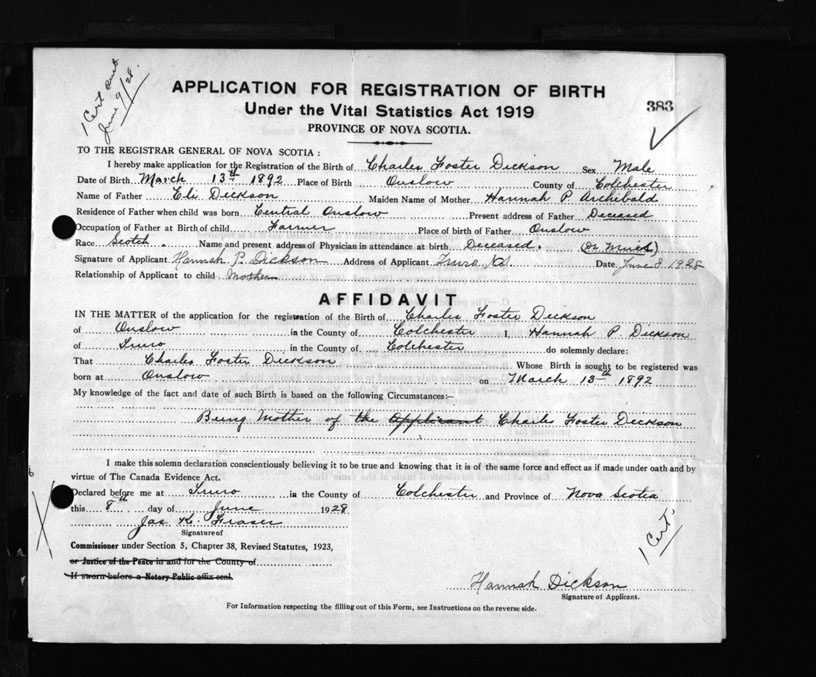 1 Cert sent
June 9/28.
APPLICATION FOR REGISTRATION OF BIRTH
Under the Vital Statistics Act 1919
383
PROVINCE OF NOVA SCOTIA.
TO THE REGISTRAR GENERAL OF NOVA SCOTIA :
I hereby make application for the Registration of the Birth of Charles Foster Dickson Sex Male
Date of Birth March 13th 1892 Place of Birth Onslow County of Colchester
Name of Father Eli Dickson Maiden Name of Mother Hannah P Archibald
Residence of Father when child was born Central Onslow Present address of Father Deceased
Occupation of Father at Birth of child Farmer Place of birth of Father Onslow
Race Scotch Name and present address of Physician in attendance at birth Deceased. (Dr Muir)
Signature of Applicant Hannah P. Dickson Address of Applicant Truro NS Date June 8 1928
Relationship of Applicant to child Mother
AFFIDAVIT
IN THE MATTER of the application for the registration of the Birth of Charles Foster Dickson
of Onslow in the County of Colchester I, Hannah P Dickson
of Truro in the County of Colchester do solemnly declare:
That Charles Foster Dickson Whose Birth is sought to be registered was
born at Onslow on March 13th 1892
My knowledge of the fact and date of such Birth is based on the following Circumstances:–
Being Mother of the Applicant Charles Foster Dickson
I make this solemn declaration conscientiously believing it to be true and knowing that it is of the same force and effect as if made under oath and by
virtue of The Canada Evidence Act.
Declared before me at Truro in the County of Colchester and Province of Nova Scotia
this 8th day of June 1928
Jas K. Fraser
Signature of
Commissioner under Section 5, Chapter 38, Revised Statutes, 1923,
or Justice of the Peace in and for the County of
If sworn before a Notary Public affix seal.
1 Cert.
Hannah Dickson
Signature of Applicant.
For Information respecting the filling out of this Form, see Instructions on the reverse side.